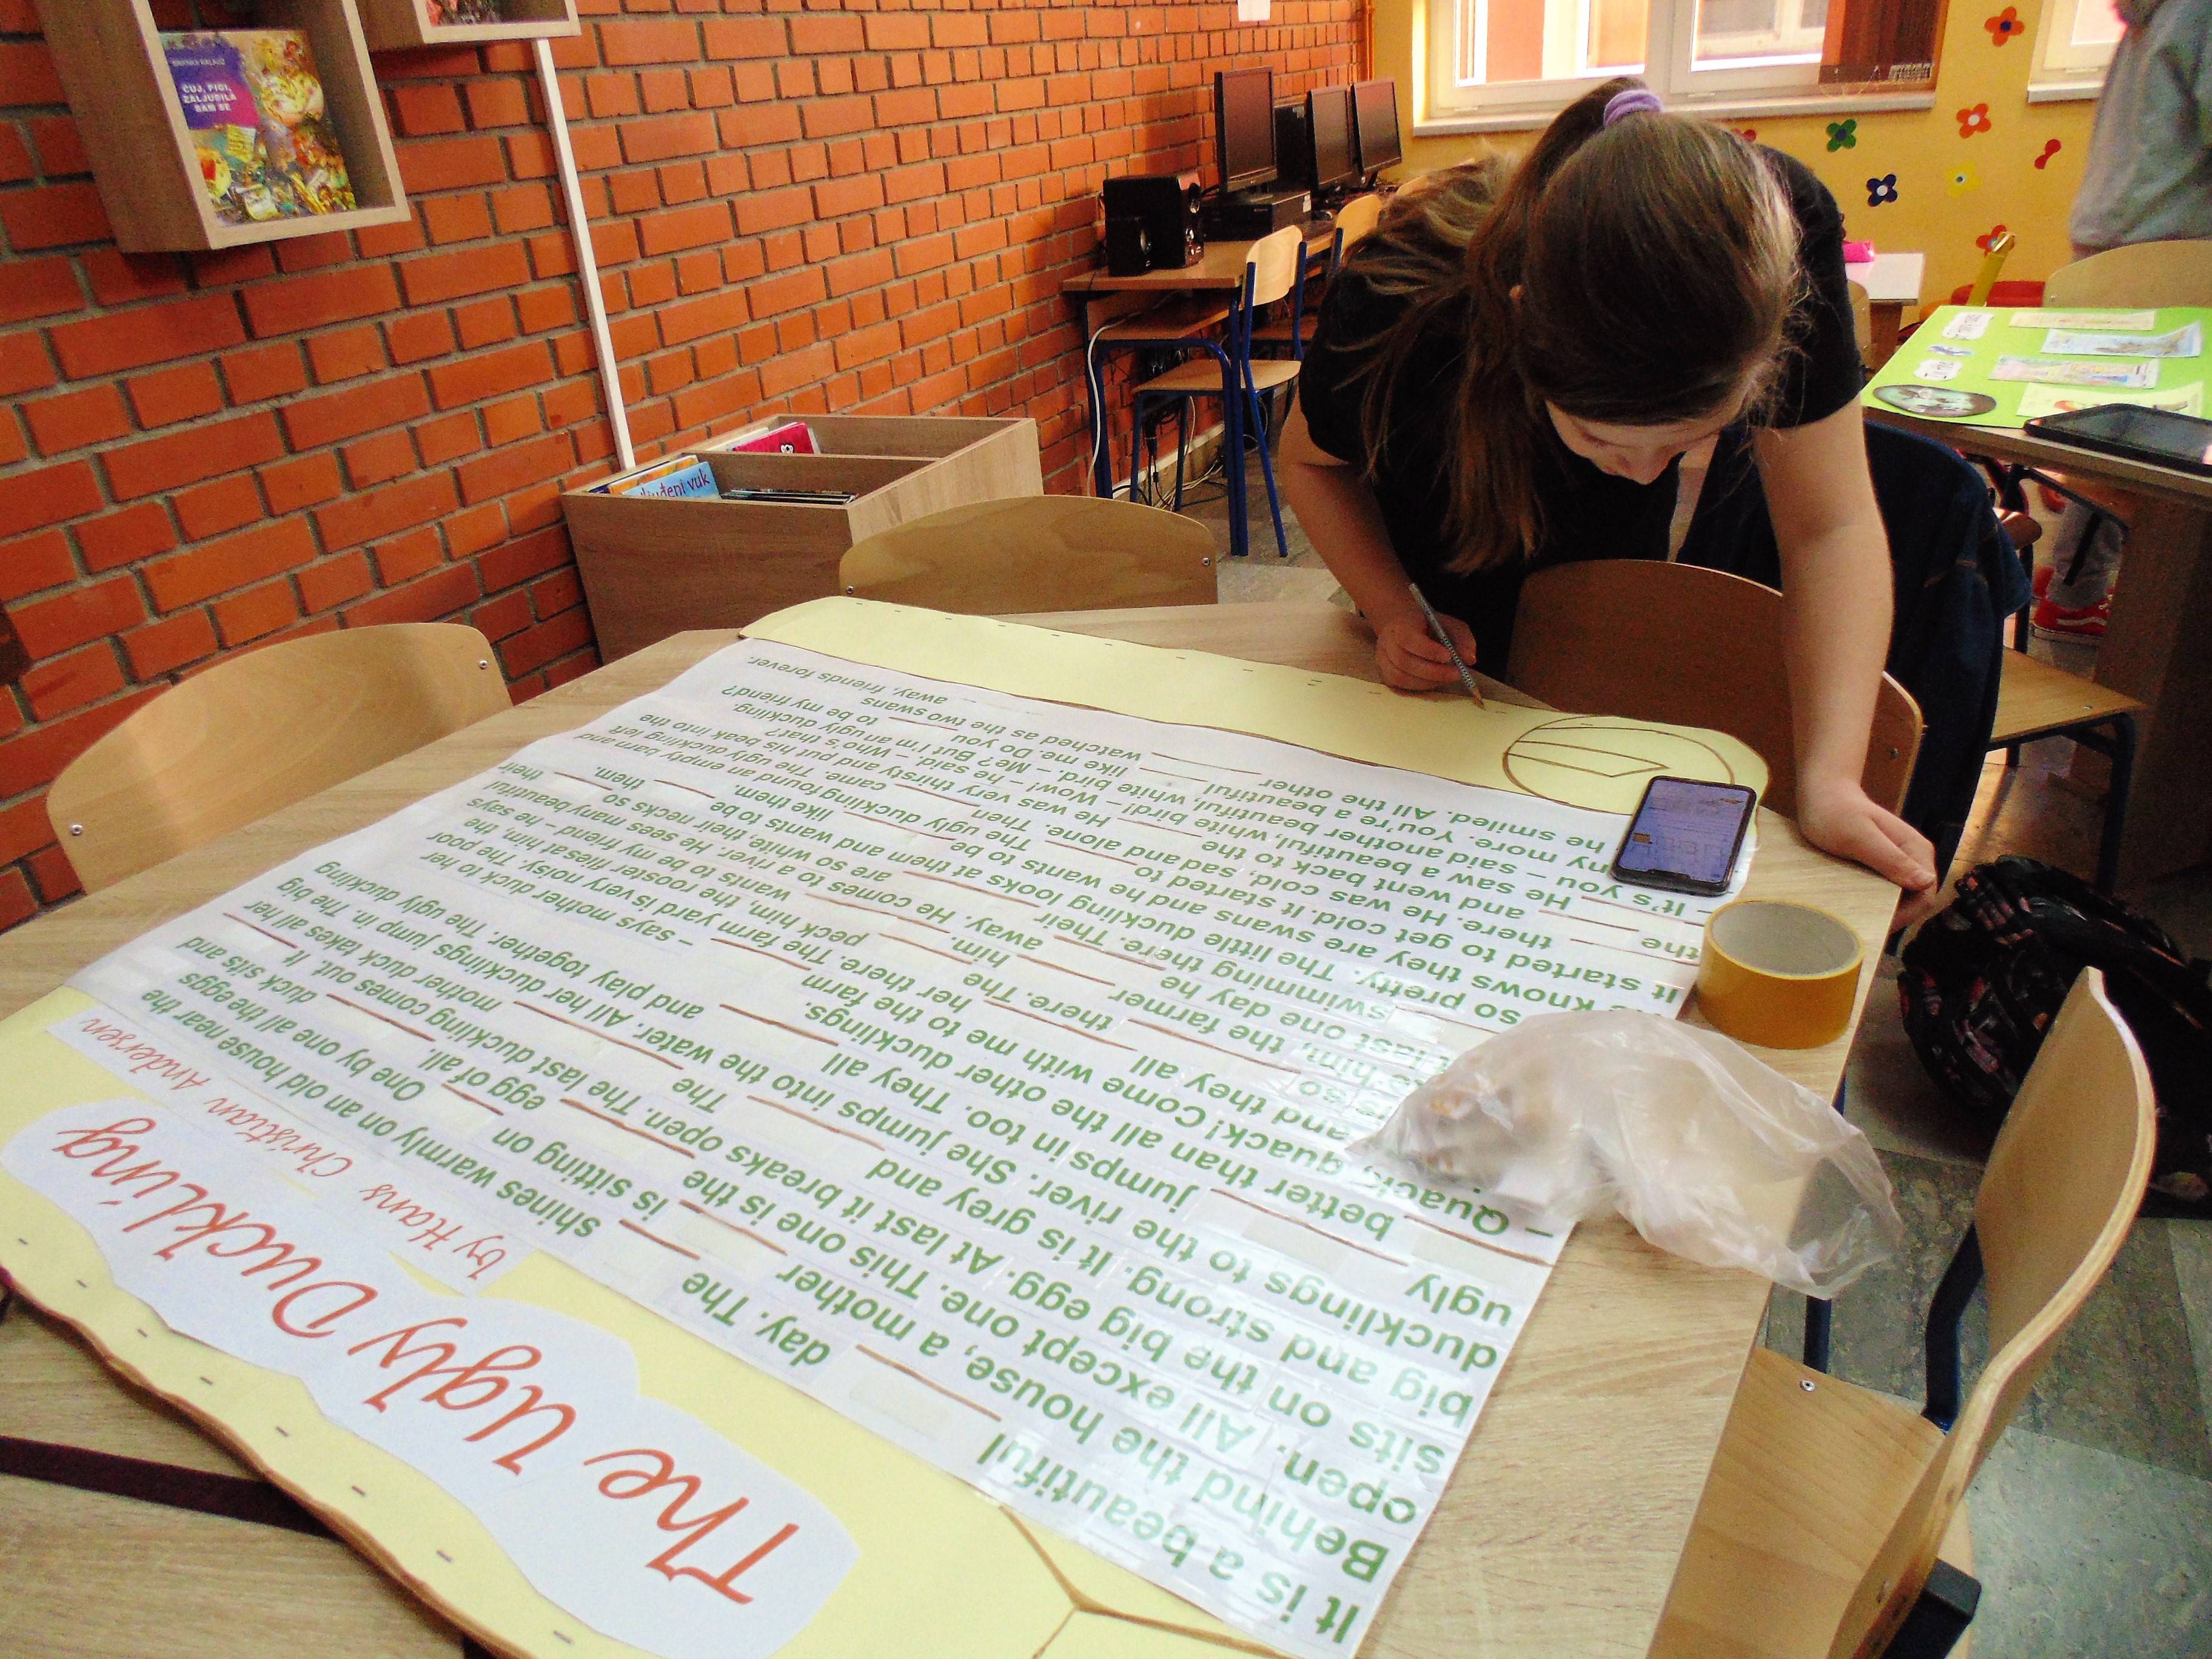 ČUJ, PIGI,
ZALJUBILA
SAM SE
vuk
The Ugly Duckling
by Hans Christian Andersen
It is a beautiful ____ day. The ____ shines warmly on an old house near the
Behind the house, a mother ____ is sitting on ____ One by one all the eggs
open. All except one. This one is the ____ egg of all. ____ duck sits and
sits on the big egg. At last it breaks open. The last duckling comes out. It
big and strong. It is grey and ____ The ____ mother duck takes all her
ducklings to the river. She jumps into the water. All her ducklings jump in. The big
ugly ____ jumps in too. They all ____ and play together. The ugly duckling
____ better than all the other ducklings.
– Quack, quack! Come with me to the farm ____ – says mother duck to her
and they all ____ her there. The farm yard is very noisy. The poor
so ____ there. The ____ peck him, the rooster flies at him, the
him, the farmer ____ him. ____ wants to be my friend – he says
last one day he ____ away. He comes to a river. He sees many beautiful
swimming there. Their ____ are so white, their necks so
so pretty. The little duckling looks at them and wants to be ____ them.
knows they are swans and he wants to be like them.
It started to get cold. It started to ____ The ugly duckling found an empty barn and
the ____ there. He was cold, sad, and alone. Then ____ came. The ugly duckling left
the ____ and went back to the ____ He was very thirsty and put his beak into the
____ He saw a beautiful, white bird! – Wow! – he said. – Who's that?
– It's you – said another beautiful, white bird. – Me? But I'm an ugly duckling.
more. You're a beautiful, white ____ like me. Do you ____ to be my friend?
he smiled. All the other ____ watched as the two swans ____ away, friends forever.